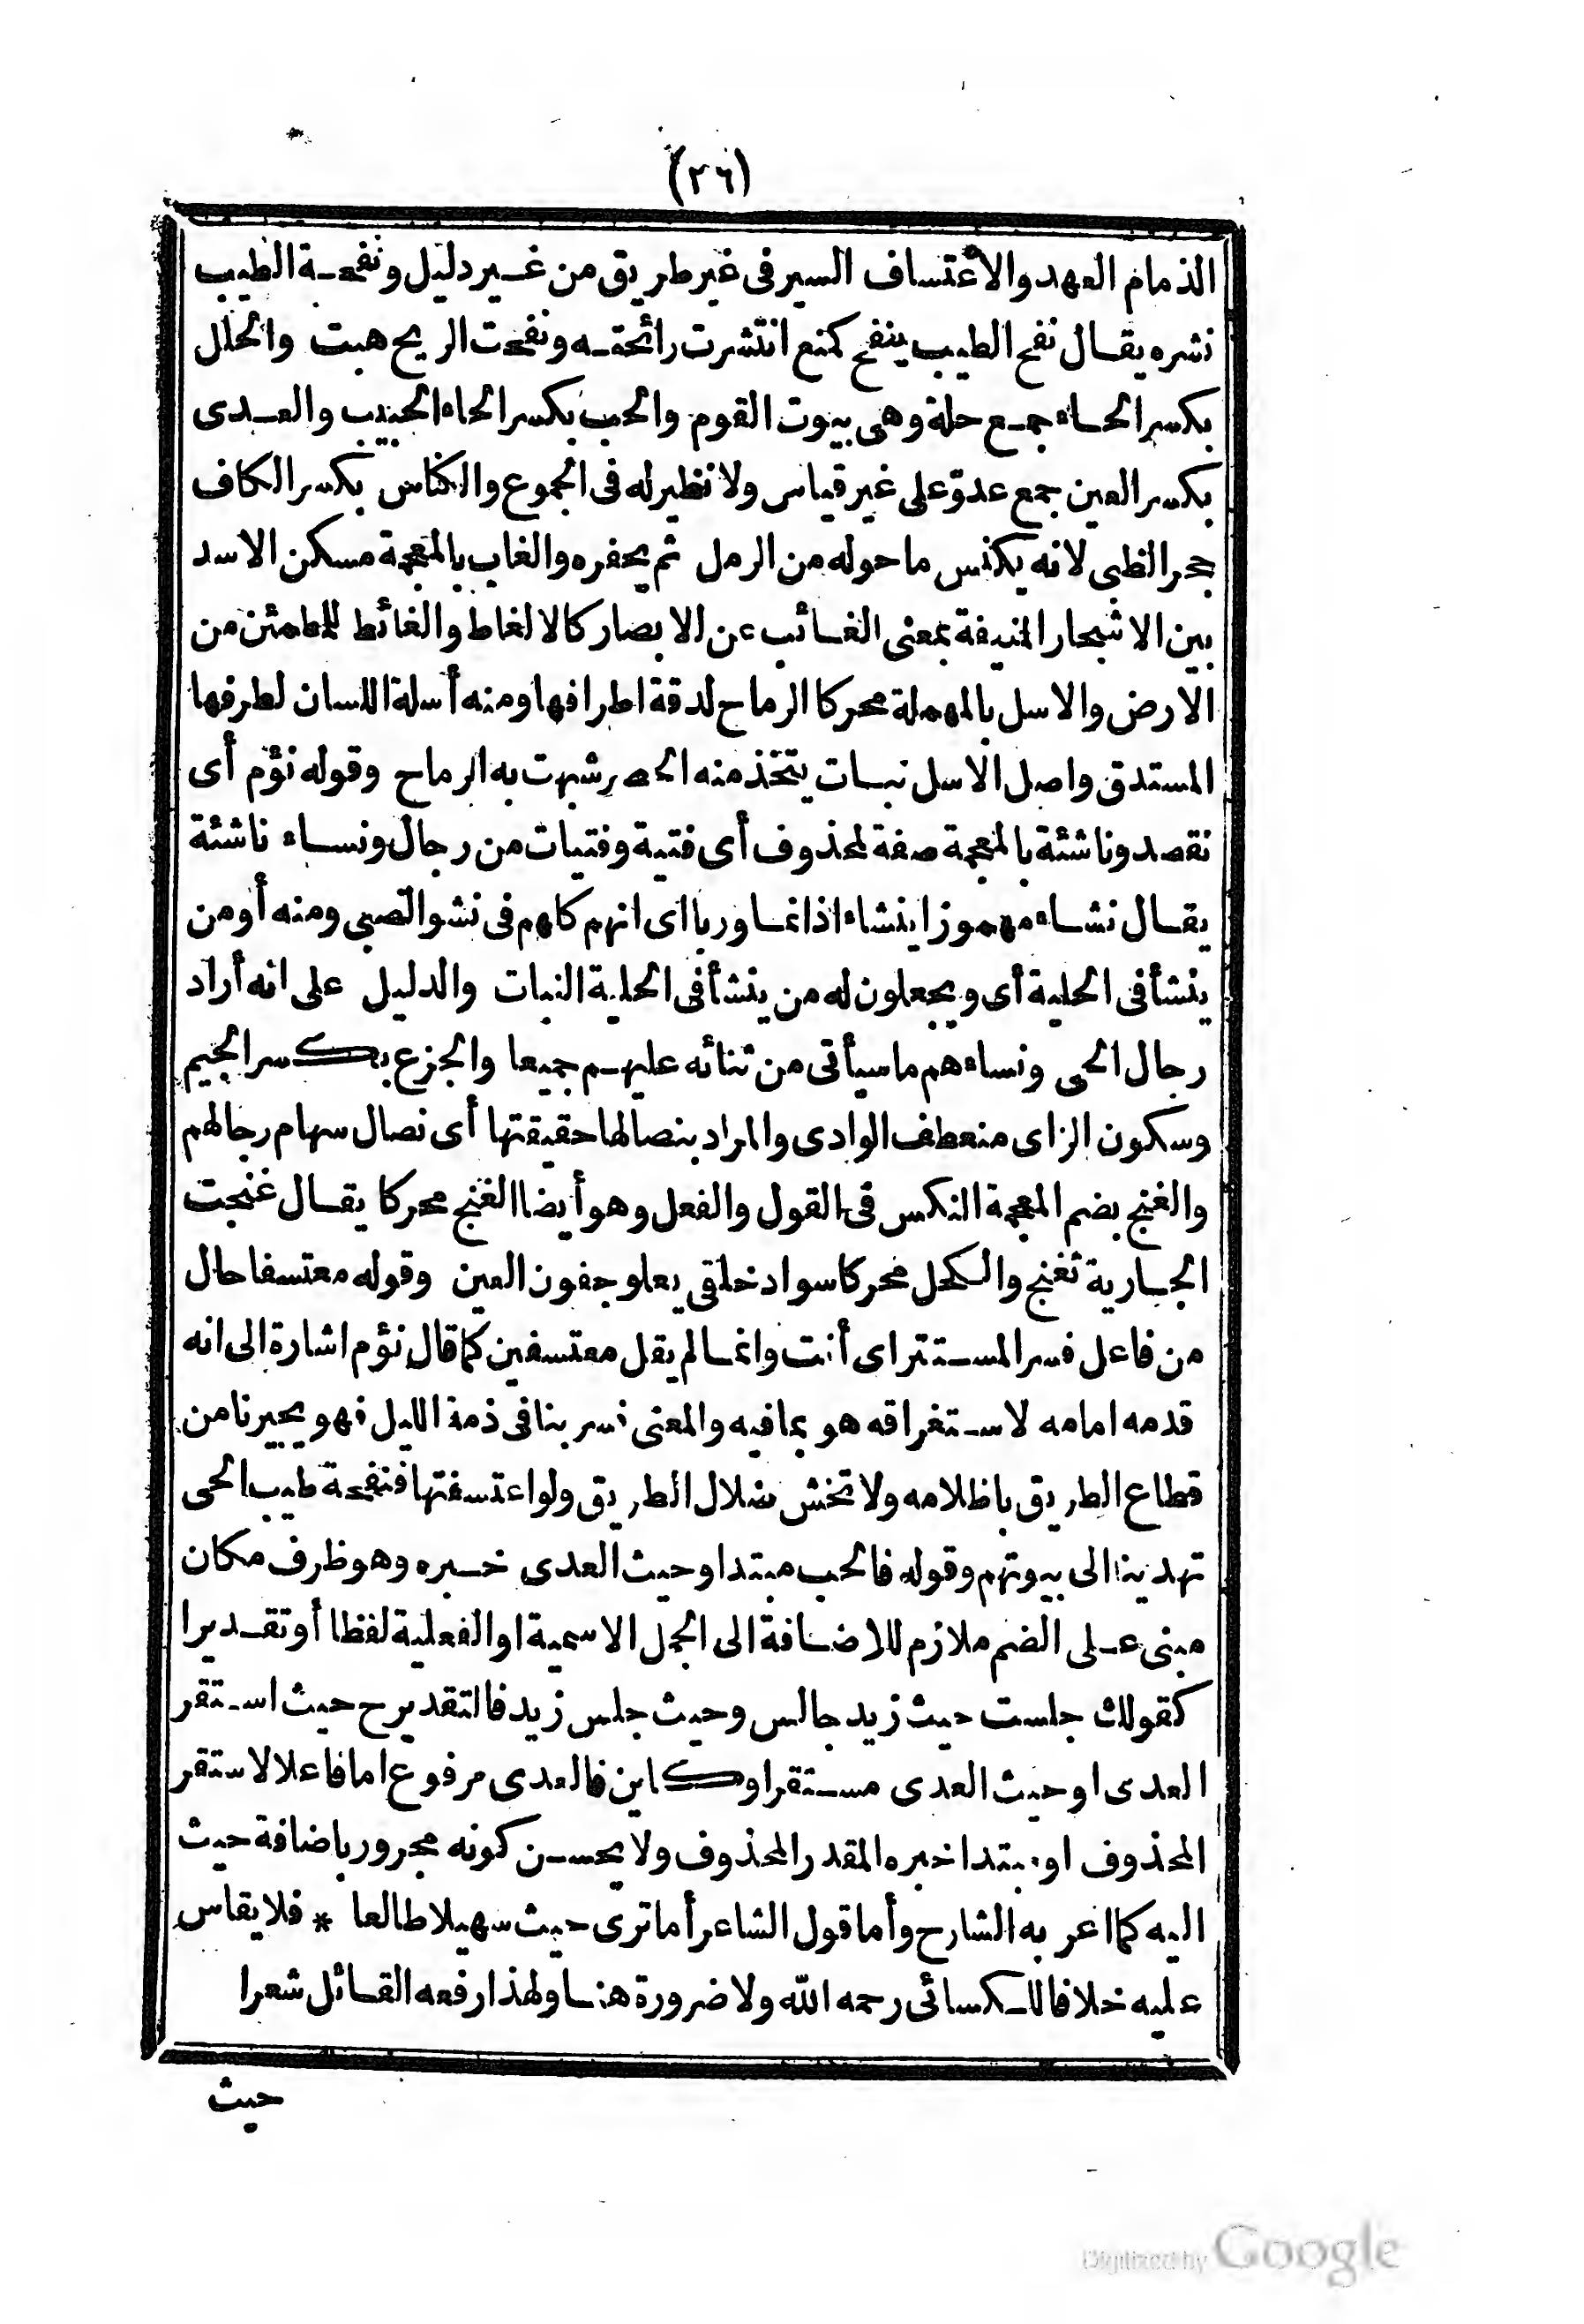 (٢٦)
الذمام العهد والاعتساف السير فى غير طريق من غير دليل ونفحة الطيب
نشره يقال نفح الطيب ينفح كمنع انتشرت رائحته ونفحت الريح هبت والحلل
بكسر الحاء جمع حلة وهى بيوت القوم والحب بكسر الحاء الحبيب والعدى
بكسر العين جمع عدوّ على غير قياس ولا نظير له فى الجموع والكناس بكسر الكاف
جحر الظبى لانه يكنس ما حوله من الرمل ثم يحفره والغاب بالمعجمة مسكن الاسد
بين الاشجار المنيفة بمعنى الغائب عن الابصار كالالغاط والغائط للمطمئن من
الارض والاسل بالمهملة محركا الرماح لدقة اطرافها ومنه أسلة اللسان لطرفها
المستدق واصل الاسل نبات يتخذ منه الحصر شبهت به الرماح وقوله نؤم أى
نقصد وناشئة بالمعجمة صفة لمحذوف أى فتية وفتيات من رجال ونساء ناشئة
يقال نشاء مهموزا ينشاء اذا نما وربا اى انهم كاهم فى نشو الصبى ومنه أو من
ينشأ فى الحلية أى ويجعلون له من ينشأ فى الحلية النبات والدليل على انه أراد
رجال الحى ونساءهم ما سيأتى من ثنائه عليهم جميعا والجزع بكسر الجيم
وسكون الزاى منعطف الوادى والمراد بنصالها حقيقتها أى نصال سهام رجالهم
والغنج بضم المعجمة التكسر فى القول والفعل وهو أيضا الغنج محركا يقال غنجت
الجارية تغنج والكحل محركا سواد خلقى يعلو جفون العين وقوله معتسفا حال
من فاعل فسر المستتر اى أنت وانما لم يقل معتسفين كما قال نؤم اشارة الى انه
قدمه امامه لاستغراقه هو بما فيه والمعنى فسر بنا فى ذمة الليل فهو يجيرنا من
قطاع الطريق باظلامه ولا تخش ضلال الطريق ولو اعتسفتها فنفحة طيب الحى
تهدينا الى بيوتهم وقوله فالحب مبتدا وحيث العدى خبره وهو ظرف مكان
مبنى على الضم ملازم للاضافة الى الجمل الاسمية او الفعلية لفظا أو تقديرا
كقولك جلست حيث زيد جالس وحيث جلس زيد فالتقدير ح حيث استقر
العدى او حيث العدى مستقر او كاين فالعدى مرفوع اما فاعلا لاستقر
المحذوف او مبتدا خبره المقدر المحذوف ولا يحسن كونه مجرور باضافة حيث
اليه كما اعر به الشارح وأما قول الشاعر أما ترى حيث سهيلا طالعا * فلا يقاس
عليه خلافا للكسائى رحمه الله ولا ضرورة هنا ولهذا رفعه القائل شعرا
حيث
Digitized by Google